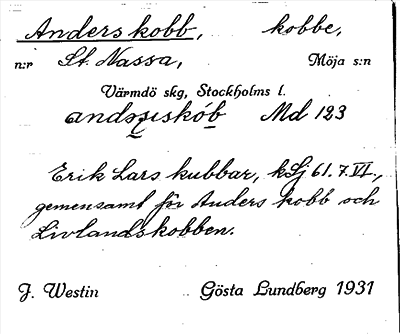 Anders kobb, kobbe,
n:r St. Nassa, Möja s:n
Värmdö skg, Stockholms l.
andəṣiskób Md 123
Erik Lars kubbar, kSj 61.7.VI.,
gemensamt för Anders kobb och
Livlandskobben.
J. Westin Gösta Lundberg 1931